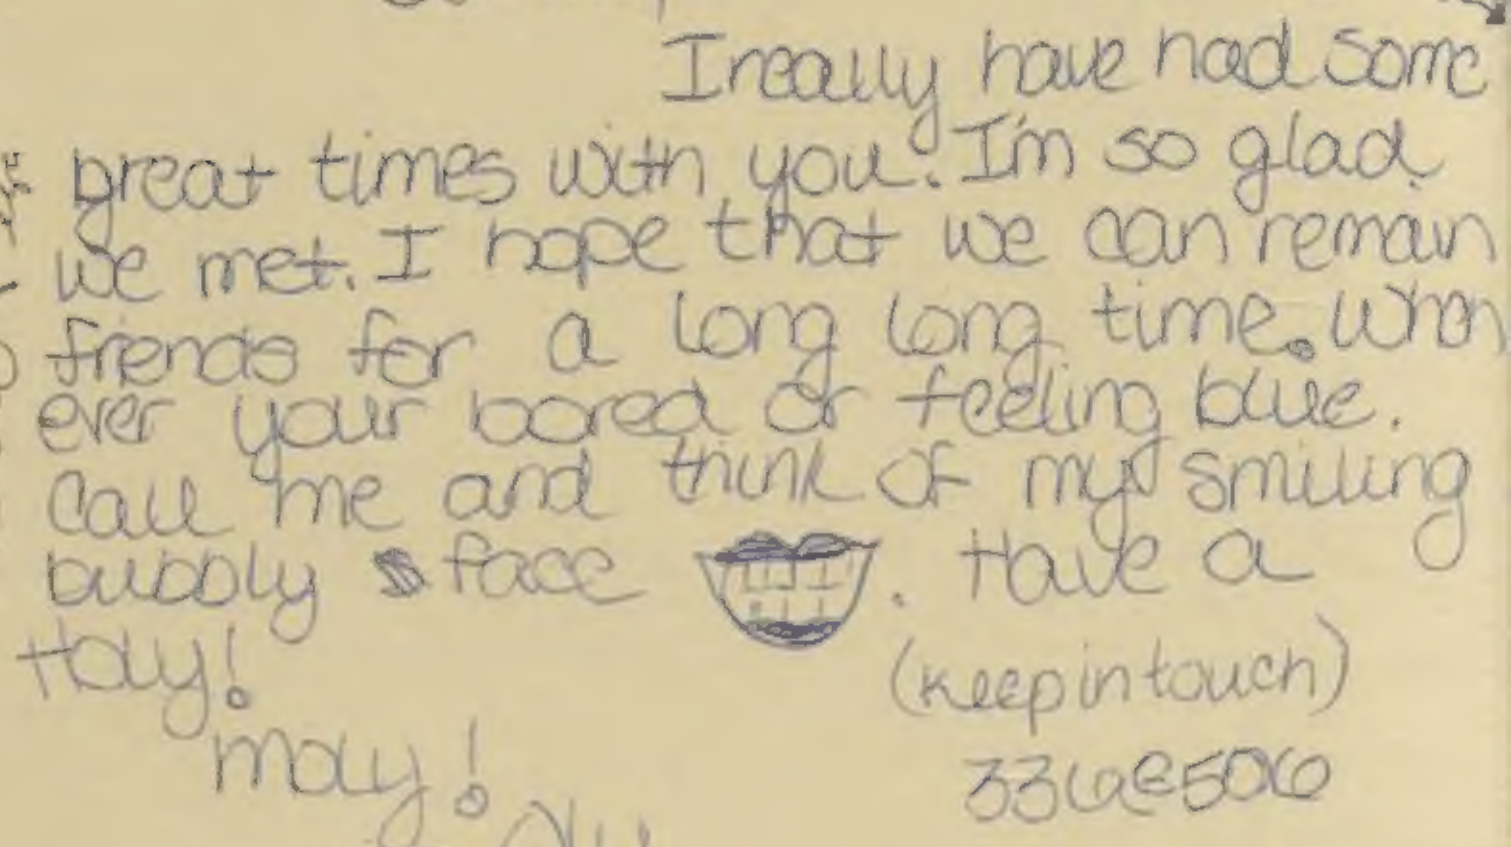 I really have had some
great times with you. I'm so glad
we met. I hope that we can remain
friends for a long long time. When
ever your bored or feeling blue.
Call me and think of my smiling
bubbly face . Have a
Holy!
moly!
(keep in touch)